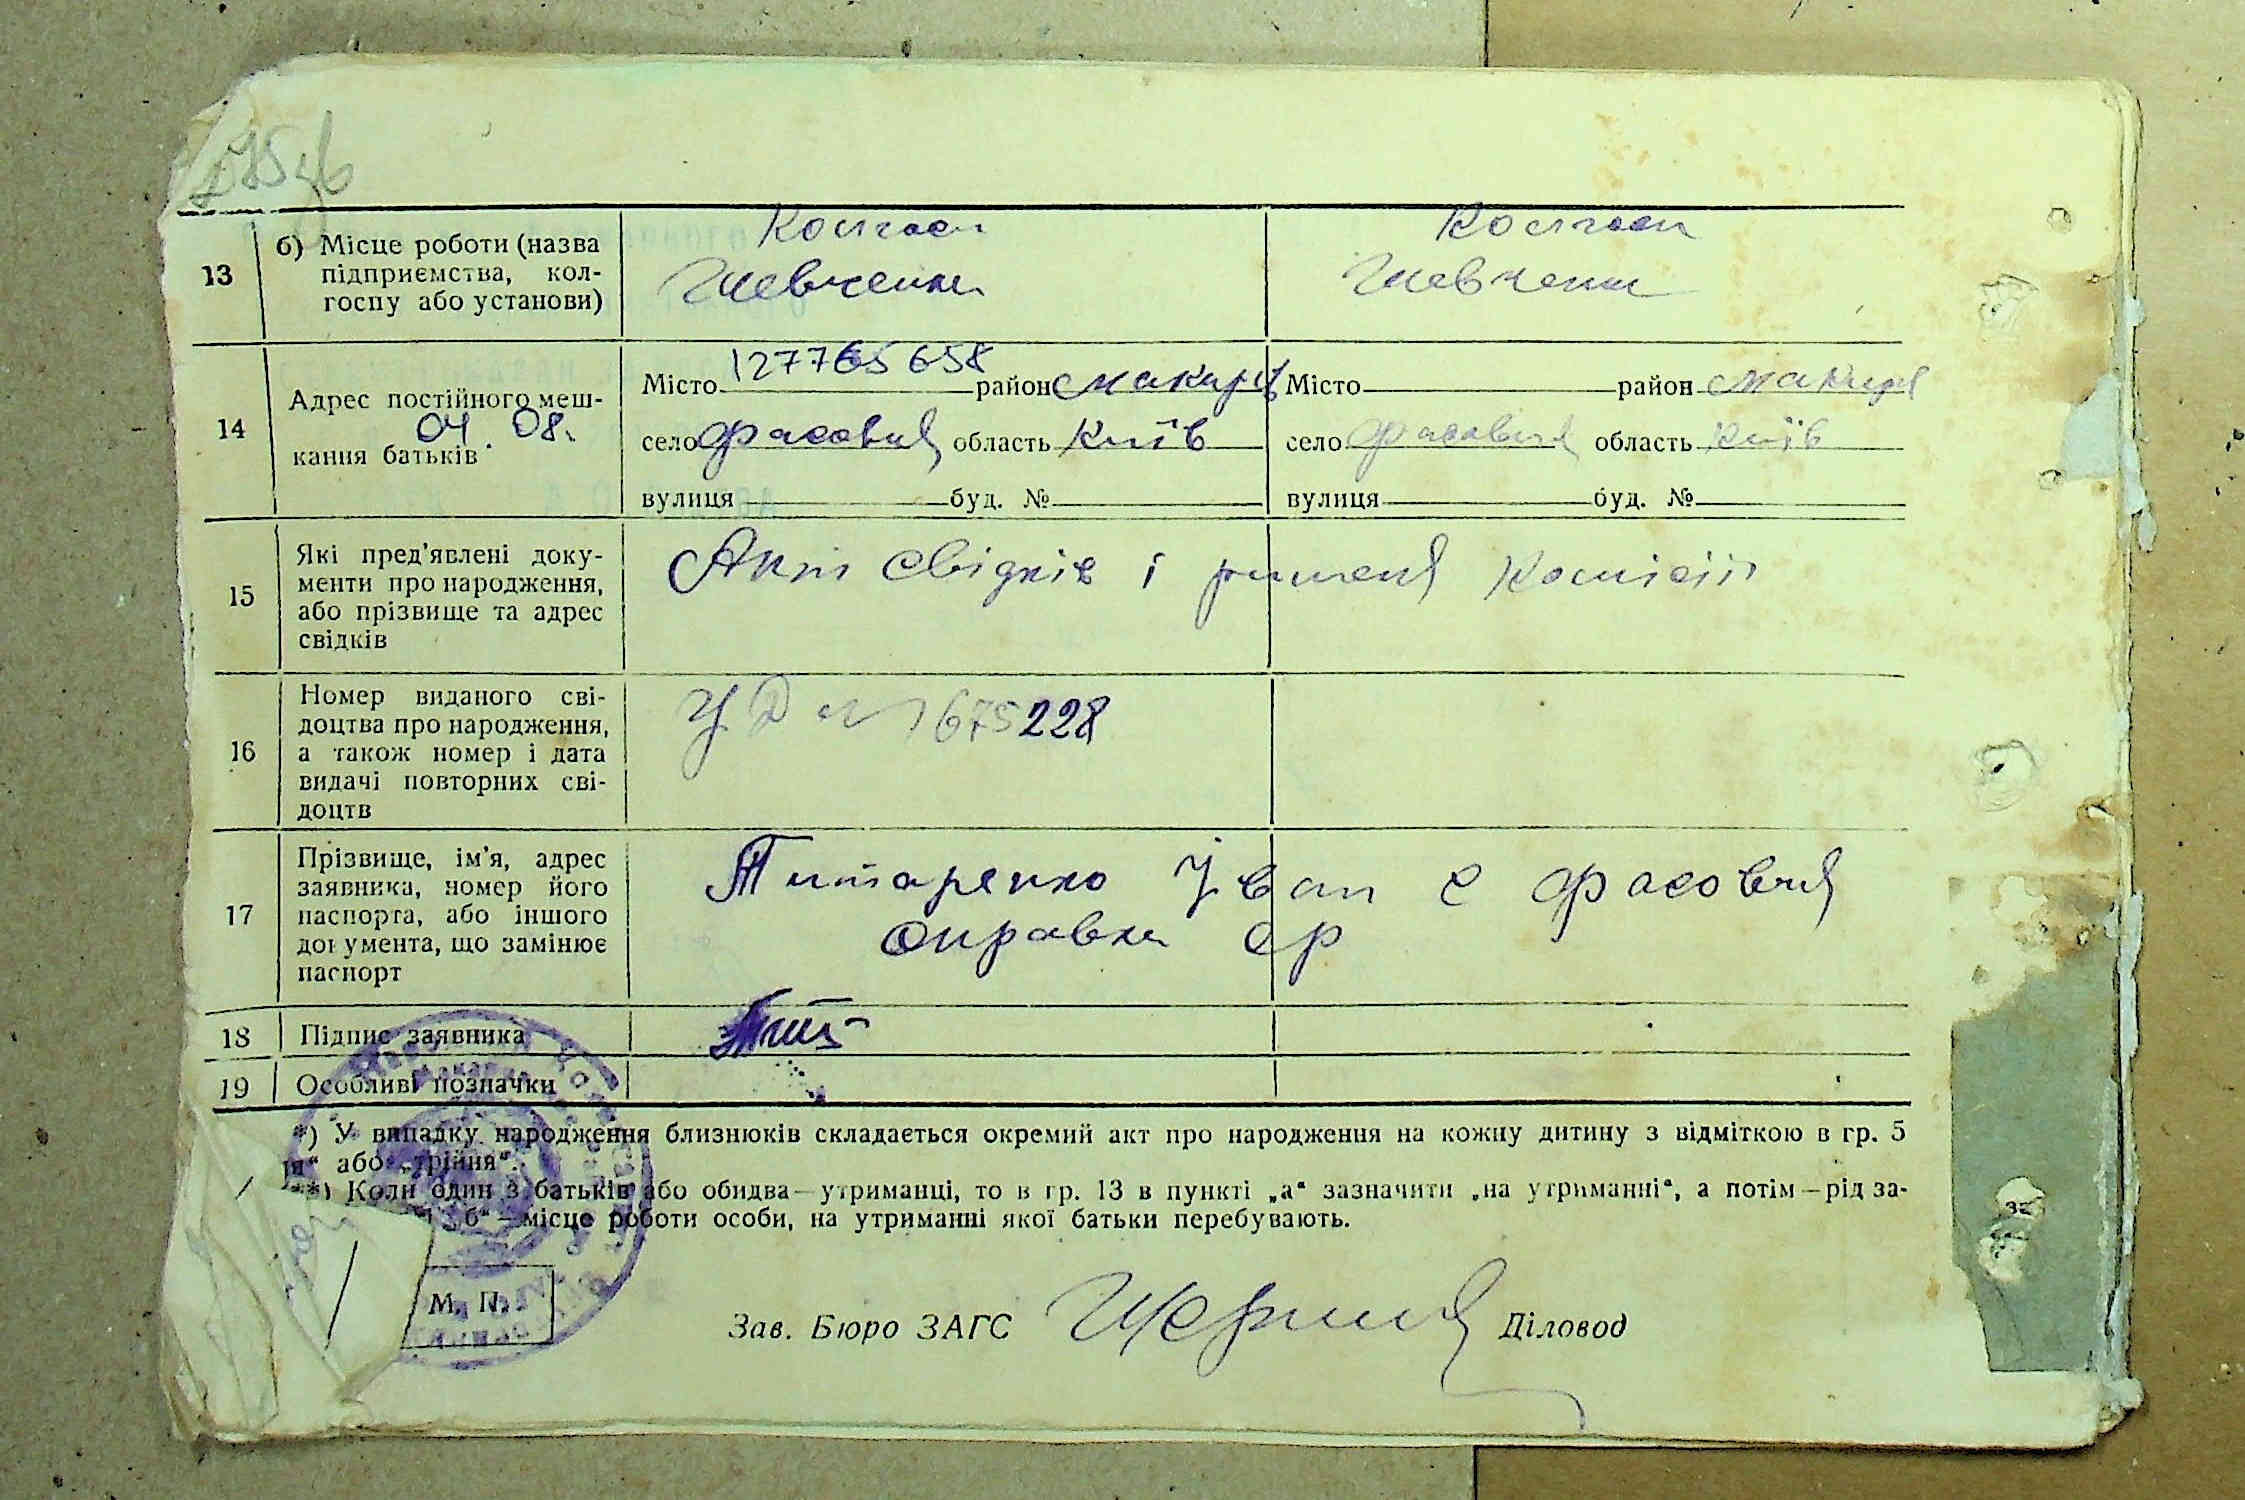 13
б) Місце роботи (назва
підприємства, кол-
госпу або установи)
Колгосп
Шевченка
Колгосп
Шевченка
14
Адрес постійного меш-
04. 08.
кання батьків
127765 658
Місто район Макарів
село Фасова область Київ
вулиця буд. №
Місто район Макарів
село Фасова область Київ
вулиця буд. №
15
Які пред'явлені доку-
менти про народження,
або прізвище та адрес
свідків
Акт свідків і рішення комісії
16
Номер виданого сві-
доцтва про народження,
а також номер і дата
видачі повторних сві-
доцтв
675228
17
Прізвище, ім'я, адрес
заявника, номер його
паспорта, або іншого
документа, що замінює
паспорт
Титаренко Іван с Фасова
справка ср
18 Підпис заявника
Тит
19 Особливі позначки
*) У випадку народження близнюків складається окремий акт про народження на кожну дитину з відміткою в гр. 5
або „трійня“.
**) Коли один з батьків або обидва—утриманці, то в гр. 13 в пункті „а“ зазначити „на утриманні“, а потім—рід за-
б“—місце роботи особи, на утриманні якої батьки перебувають.
М. П.
Зав. Бюро ЗАГС Діловод